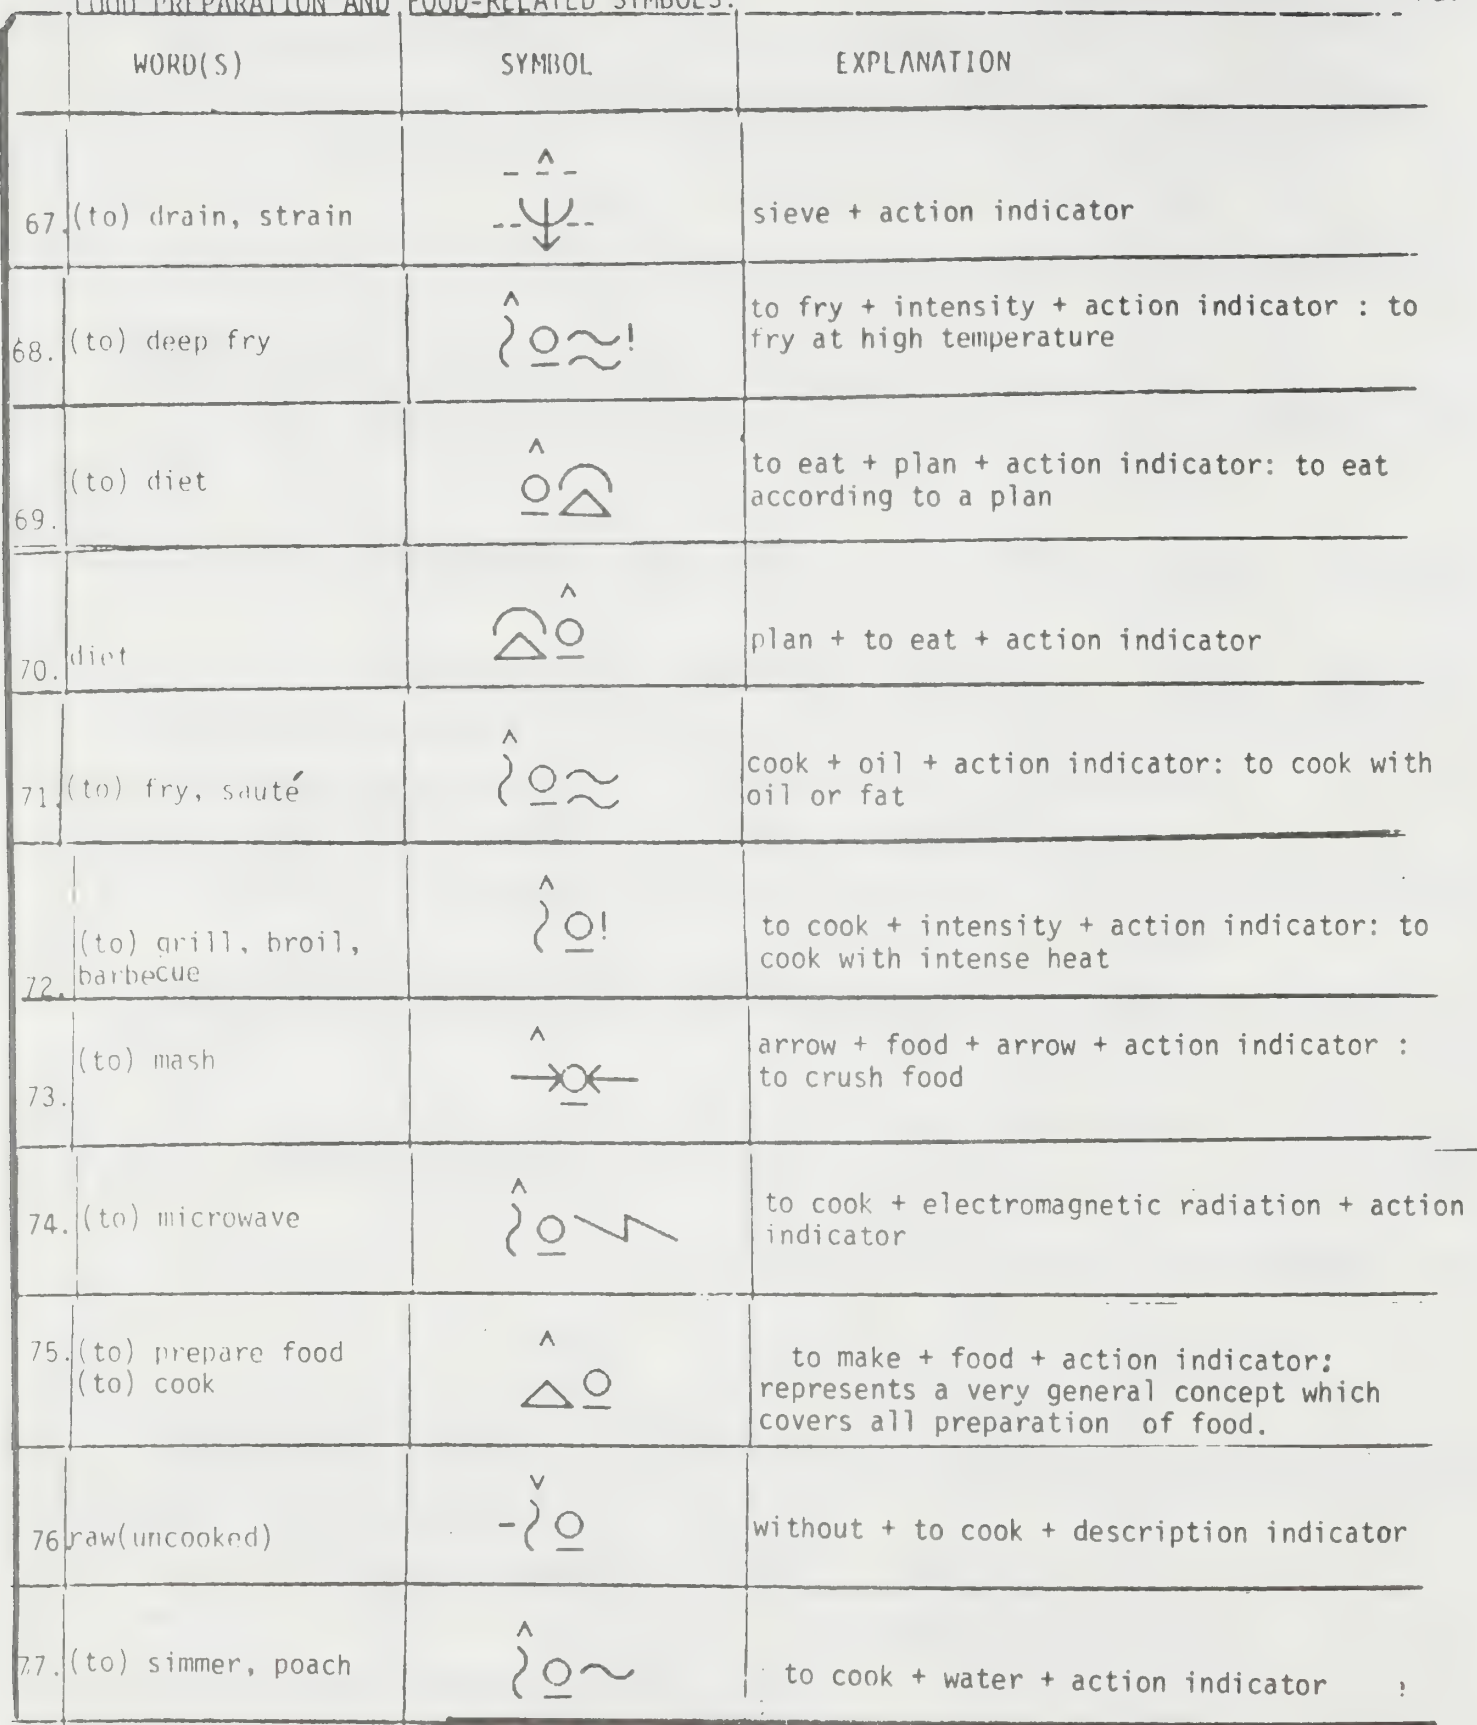 FOOD PREPARATION AND FOOD-RELATED SYMBOLS.
WORD(S) SYMBOL EXPLANATION
67. (to) drain, strain sieve + action indicator
68. (to) deep fry to fry + intensity + action indicator : to
fry at high temperature
69. (to) diet to eat + plan + action indicator: to eat
according to a plan
70. diet plan + to eat + action indicator
71. (to) fry, sauté cook + oil + action indicator: to cook with
oil or fat
72. (to) grill, broil,
barbecue
to cook + intensity + action indicator: to
cook with intense heat
73. (to) mash arrow + food + arrow + action indicator :
to crush food
74. (to) microwave to cook + electromagnetic radiation + action
indicator
75. (to) prepare food
(to) cook
to make + food + action indicator:
represents a very general concept which
covers all preparation of food.
76 raw(uncooked) without + to cook + description indicator
77. (to) simmer, poach to cook + water + action indicator